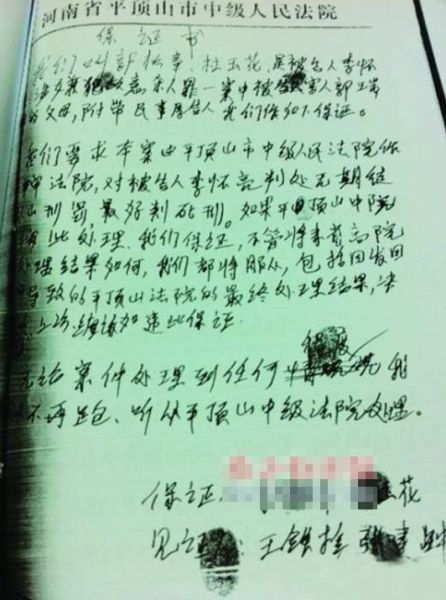 河南省平顶山市中级人民法院
保证书
我们叫郭松章、杜玉花,是被告人李怀
杀人罪一案中被害人郭
的父母,附带民事原告人我们作如下保证。
我们要求本案由平顶山市中级人民法院作
审法院,对被告人李怀亮判处无期徒
刑罚最好判死刑。如果平顶山中院
此处理,我们保证,不管将来省高院
处理结果如何,我们都将服从,包括因发回
导致的平顶山法院的最终处理结果,决
不上访 如违此保证
程度
无论案件处理到任何 我
不再上
听从平顶山中级法院处理。
保证 花
见证 王铁拴 张建